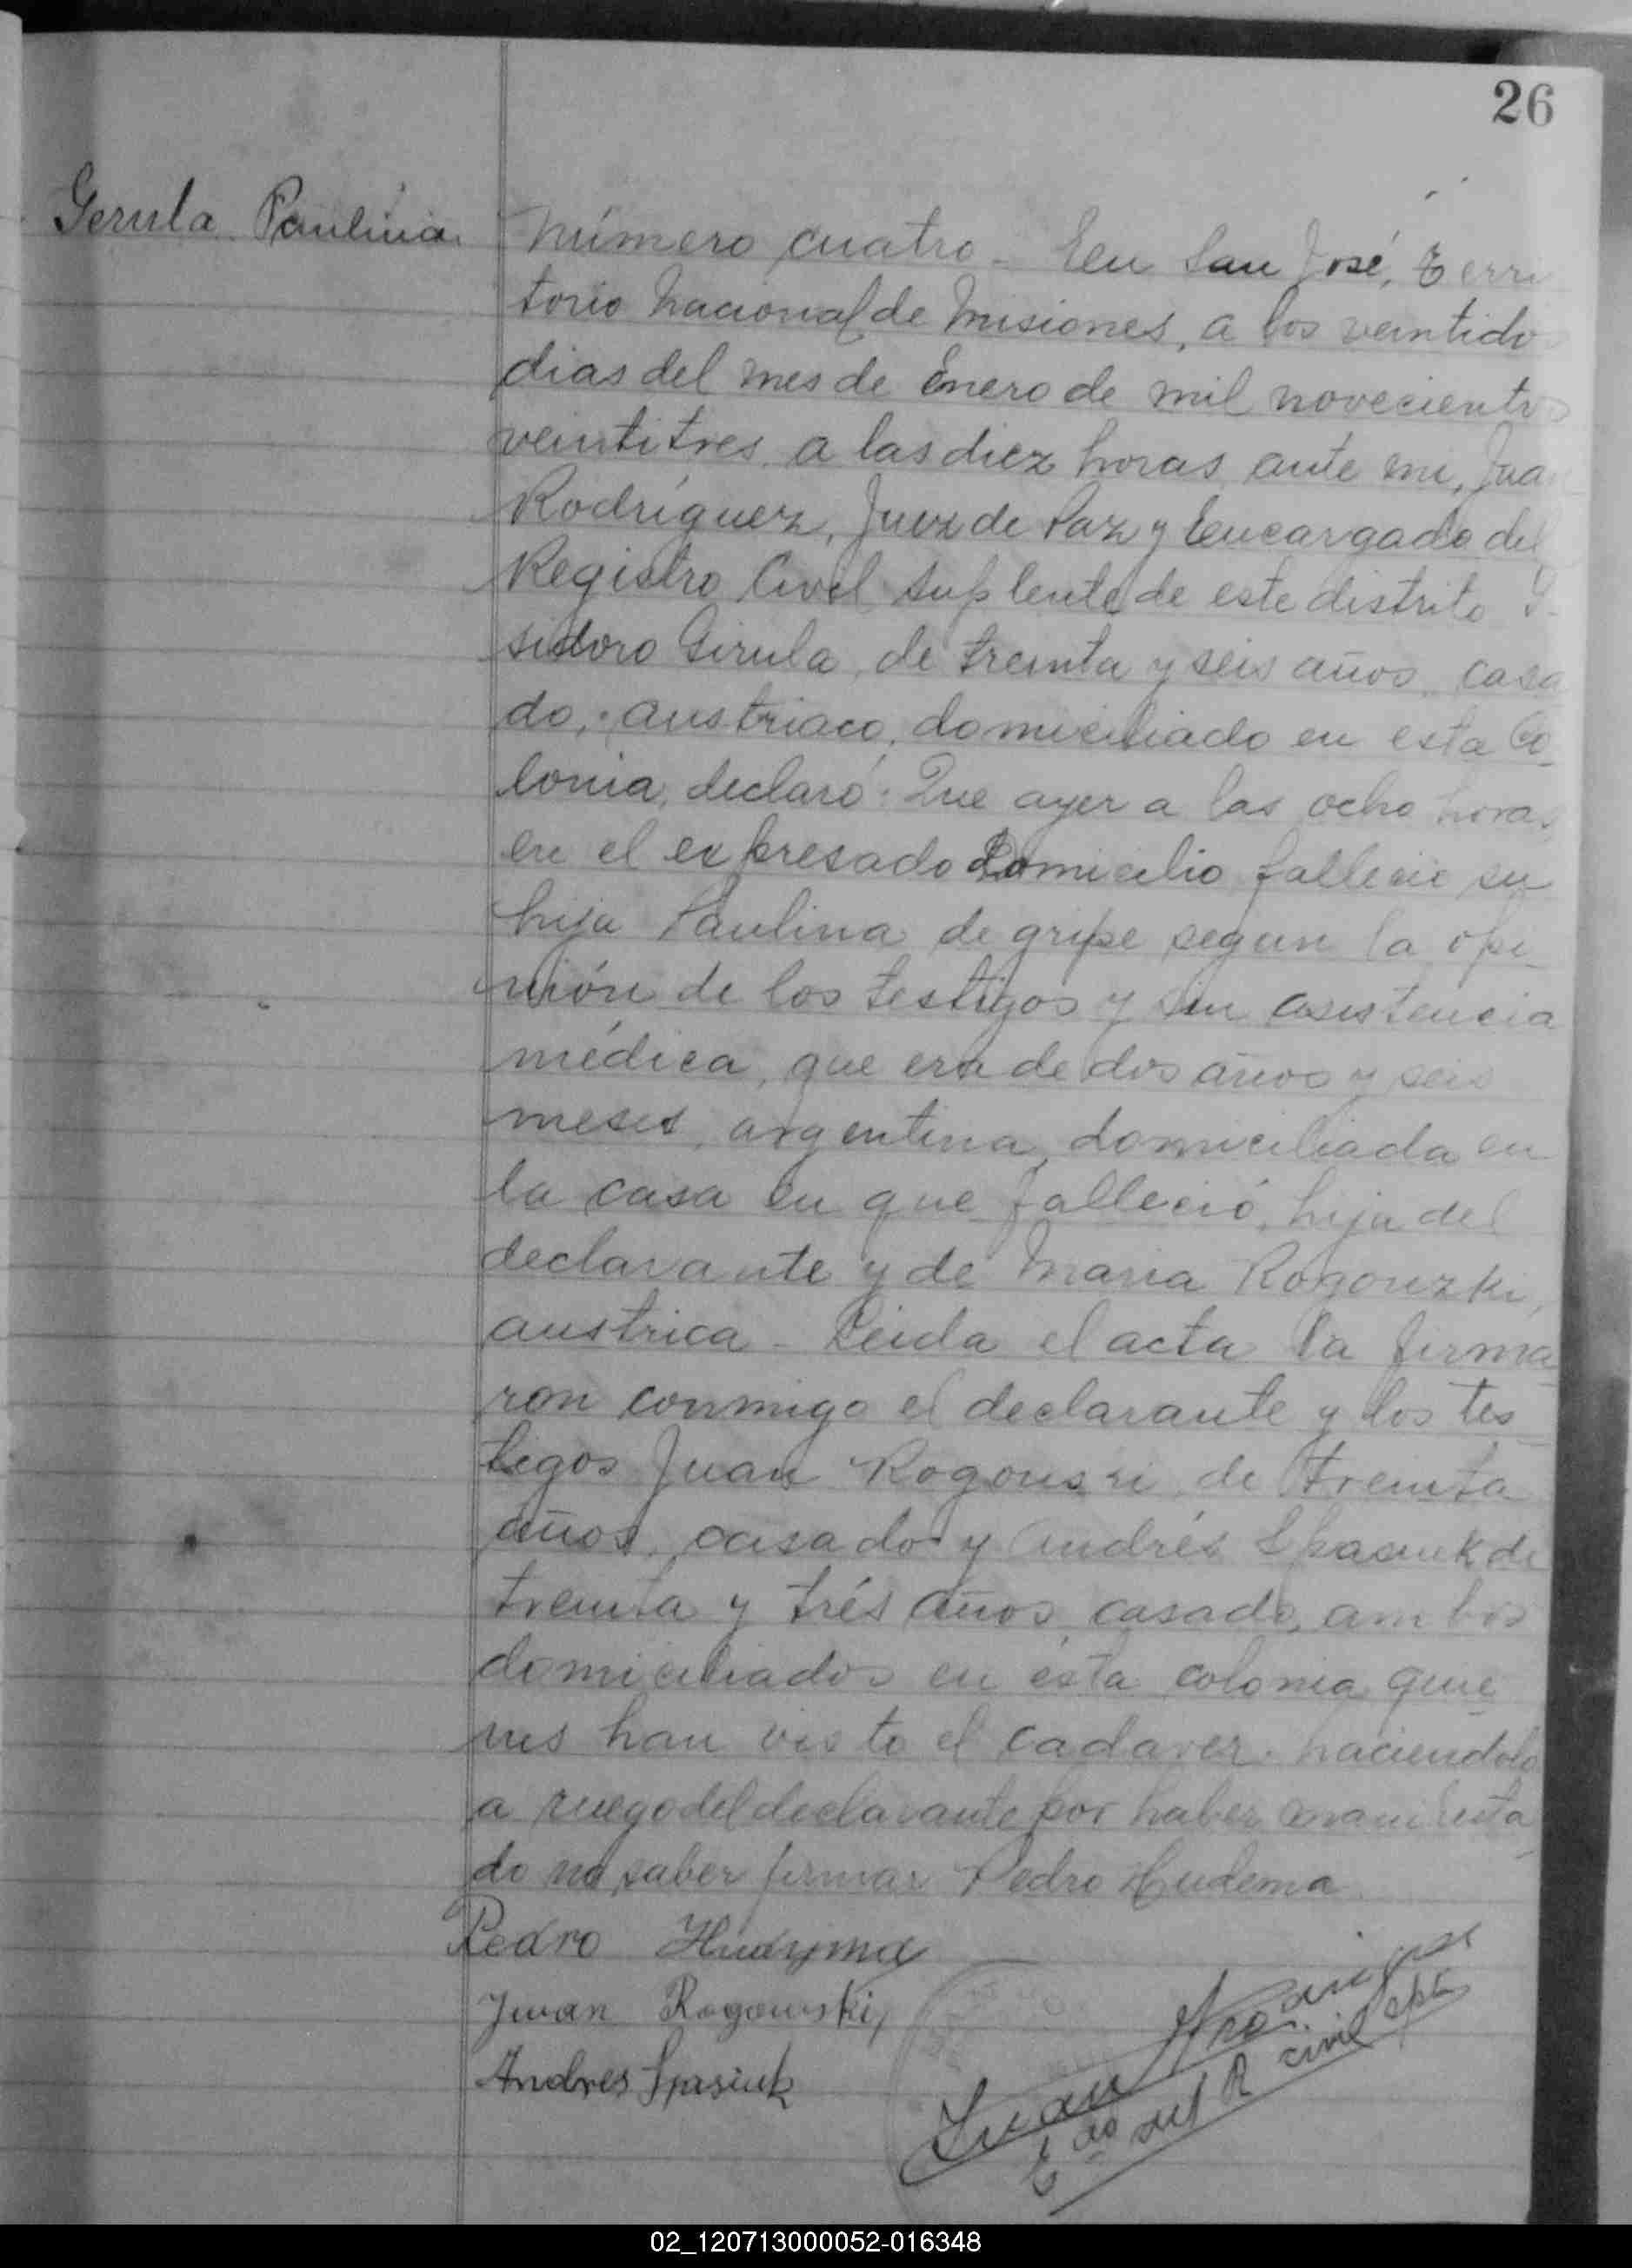 26
Gerula Paulina
Número cuatro - En San José, Terri
torio Nacional de Misiones, a los veintidos
dias del mes de Enero de mil novecientos
veintitres, a las diez horas, ante mi, Juan
Rodríguez, Juez de Paz y Encargado del
Registro Civil suplente de este distrito I-
sidoro Girula, de treinta y seis años, casa
do, austriaco, domiciliado en esta Co-
lonia, declaró: Que ayer a las ocho horas
en el expresado Domicilio fallecio su
hija Paulina de gripe segun la opi-
nión de los testigos y sin asistencia
médica, que era de dos años y seis
meses, argentina, domiciliada en
la casa en que falleció, hija del
declarante y de Maria Rogouzki,
austrica - Leida el acta la firma
ron conmigo el declarante y los tes-
tigos Juan Rogouski de treinta
años, casado y Andrés Spasiuk de
treinta y trés años casado, ambos
domiciliados en ésta colonia quie-
nes han visto el cadaver. haciendolo
a ruego del declarante por haber manifesta-
do no saber firmar Pedro Hudema
Pedro Hudyma
Juan Rogowski
Andres Spasiuk
Juan
R civil
02_120713000052-016348